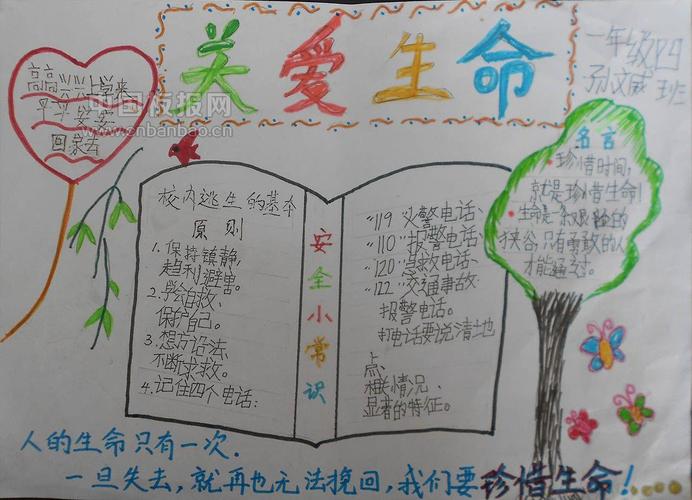 关爱生命
一年级四班
孙文威
高高兴兴上学来
平平安安
回家去
中国板报网
www.cnbanbao.cn
校内逃生的基本
原则
1.保持镇静,
趋利避害。
2.学会自救,
保护自己。
3.想方设法
不断求救。
4.记住四个电话:
安全小常识
"119"火警电话、
"110"报警电话、
"120"急救电话、
"122"交通事故
报警电话。
打电话要说清土地
点、
相关情况、
显著的特征。
名言
珍惜时间,
就是珍惜生命!
生命是一条艰险的
狭谷,只有勇敢的人
才能通过。
人的生命只有一次.
一旦失去,就再也无法挽回,我们要珍惜生命!